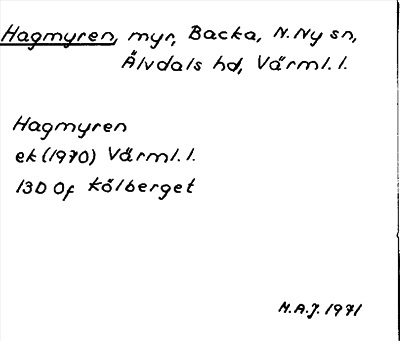 Hagmyren, myr, Backa, N. Ny sn,
Älvdals hd, Värml. l.
Hagmyren
ek (1970) Värml. l.
13D 0f Kölberget
M.A.J. 1971